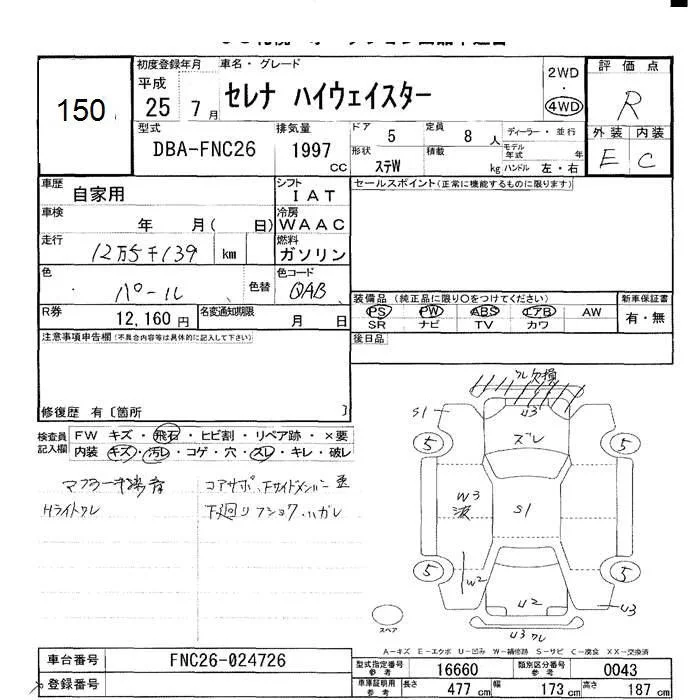 初度登録年月 車名・グレード 2WD 評価点
150 平成 セレナ ハイウェイスター ・
25年 7月 4WD R
型式 排気量 ドア 定員 ディーラー・並行 外装 内装
DBA-FNC26 1997 5 8人 モデル年式 年 E C
CC 形状 ステW 積載 kg ハンドル 左・右
車歴 自家用 シフト IAT セールスポイント(正常に機能するものに限ります)
車検 年 月( 日) 冷房 WAAC
走行 12万5千139 km 燃料 ガソリン
色 パール 色替 色コード QAB
装備品 (純正品に限り○をつけてください) 新車保証書
R券 12,160円 名変通知期限 月 日 PS PW ABS エアB AW 有・無
SR ナビ TV カワ
注意事項申告欄(不具合内容等は具体的に記入して下さい) 後日品
修復歴 有〔箇所 〕
検査員記入欄 FW キズ・飛石・ヒビ割・リペア跡・×要
内装 キズ・汚レ・コゲ・穴・スレ・キレ・破レ
マフラー
コアサポ、下サイドメンバー
Hライトワレ 下廻リフショク、ハガレ
ワレ欠損
S1 U3
ズレ
5 5
W3 S1
波
5 5
W2 U2 U3
U3ワレ
スペア
A-キズ E-エクボ U-凹み W-補修跡 S-サビ C-腐食 XX-交換済
車台番号 FNC26-024726 型式指定番号 参考 16660 類別区分番号 参考 0043
登録番号 車庫証明用 参考 長さ 477cm 幅 173cm 高さ 187cm